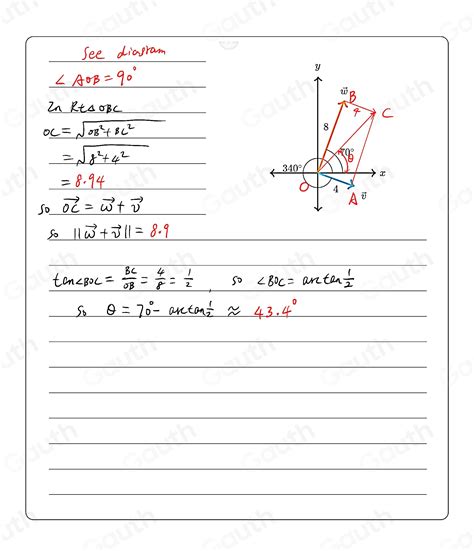 See diagram
∠AOB=90°
In Rt△OBC
OC=√OB²+BC²
=√8²+4²
=8.94
so OC→=w→+v→
so ||w→+v→||=8.9
tan∠BOC=BC/OB=4/8=1/2, so ∠BOC=arctan1/2
so θ=70°-arctan1/2≈43.4°
y
w→
B
4
C
8
70°
θ
340°
x
O
4
A
v→
Gauth